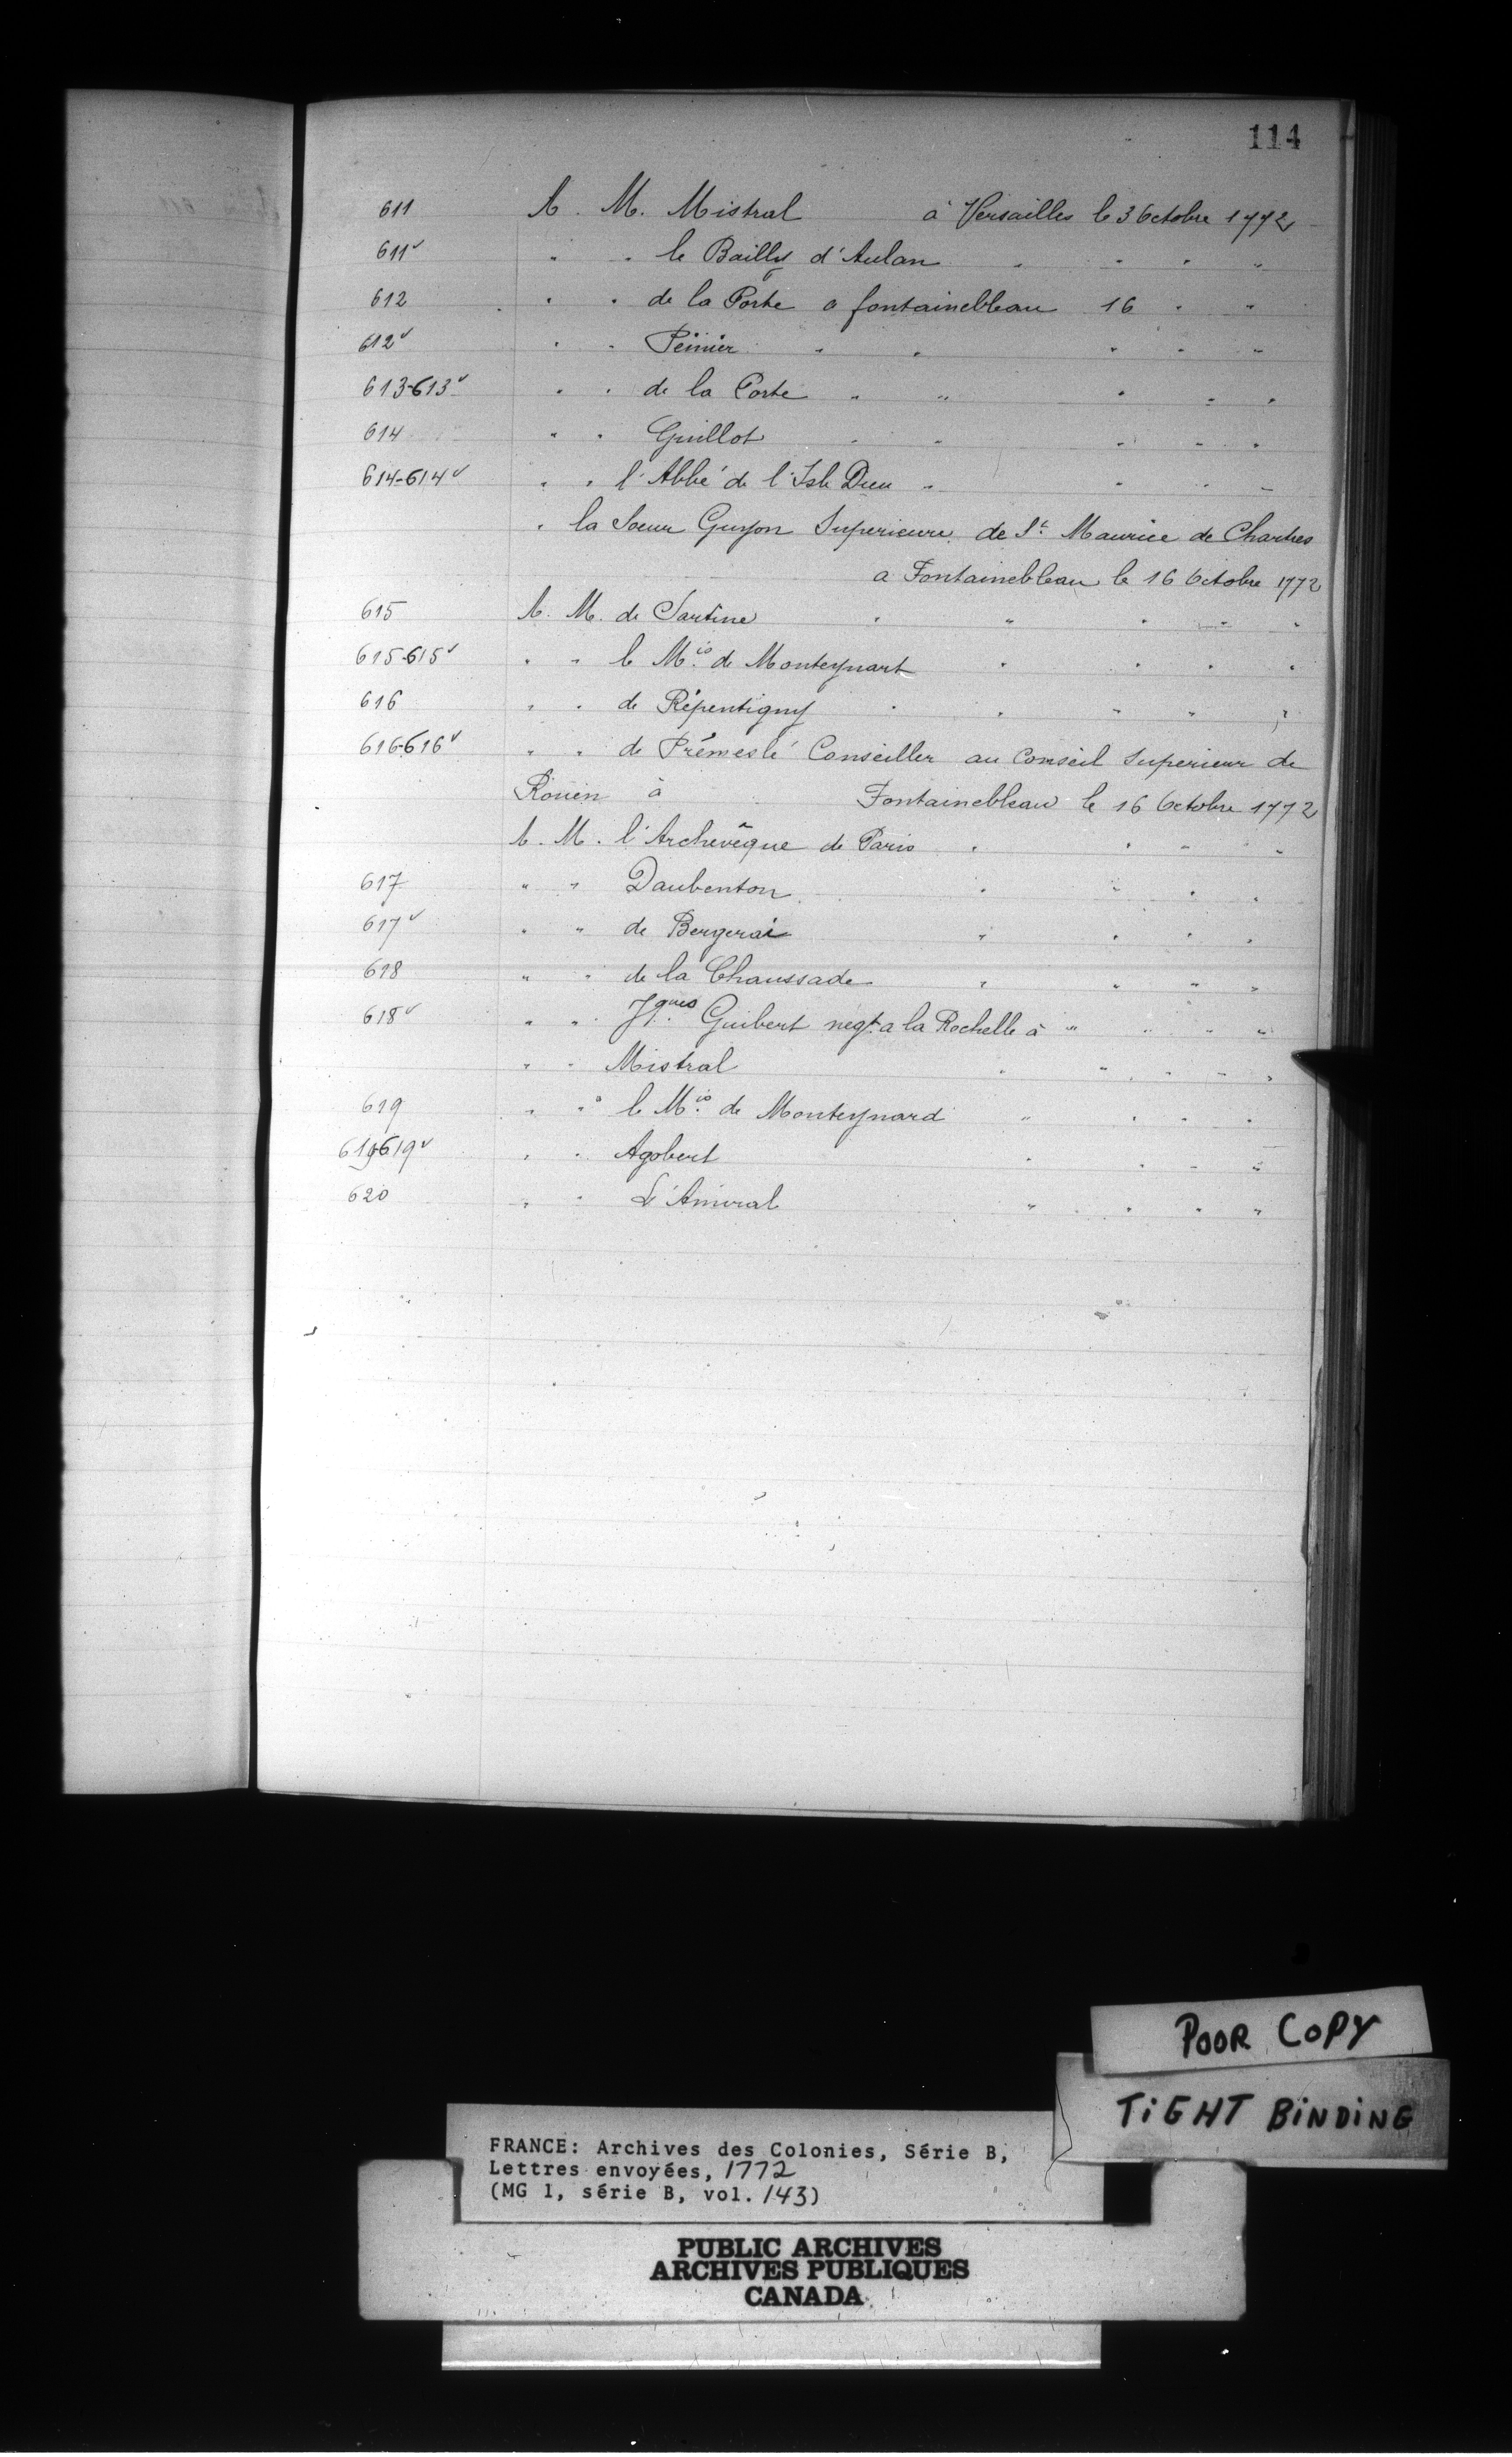 114
611 A. M. Mistral à Versailles le 3 Octobre 1772
611v " " le Bailly d'Aulan " " " "
612 " " de la Porte a fontainebleau 16 " "
612v " " Peinier " " " " "
613-613v " " de la Porte " " " " "
614 " " Guillot " " " " "
614-614v " " l'Abbé de l'Isle Dieu " " " "
" la Soeur Guyon Superieure de St. Maurice de Chartres
a Fontainebleau le 16 Octobre 1772
615 A. M. de Sartine " " " " "
615-615v " " le Mis. de Monteynart " " " "
616 " " de Répentigny " " " " "
616-616v " " de Prémeslé Conseiller au Conseil Superieur de
Rouen à Fontainebleau le 16 Octobre 1772
A. M. l'Archevêque de Paris " " " "
617 " " Daubenton " " " "
617v " " de Bergerai " " " "
618 " " de la Chaussade " " " "
618v " " Jques Guibert negt. a la Rochelle à " " " "
" " Mistral " " " " "
619 " " le Mis. de Monteynard " " " "
619-619v " " Agobert " " " "
620 " " L'Amiral " " " "
POOR COPY
TiGHT BiNDiNG
FRANCE: Archives des Colonies, Série B,
Lettres envoyées, 1772
(MG 1, série B, vol. 143)
PUBLIC ARCHIVES
ARCHIVES PUBLIQUES
CANADA